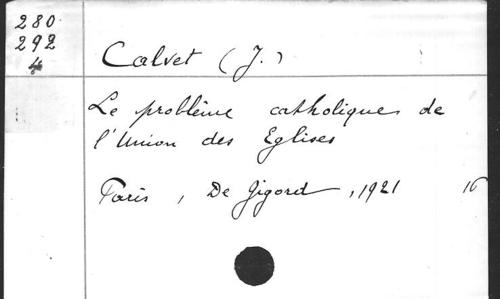 280
292
4
Calvet (J.)
Le problème catholique de
l'Union des Eglises
Paris, De Gigord, 1921 16